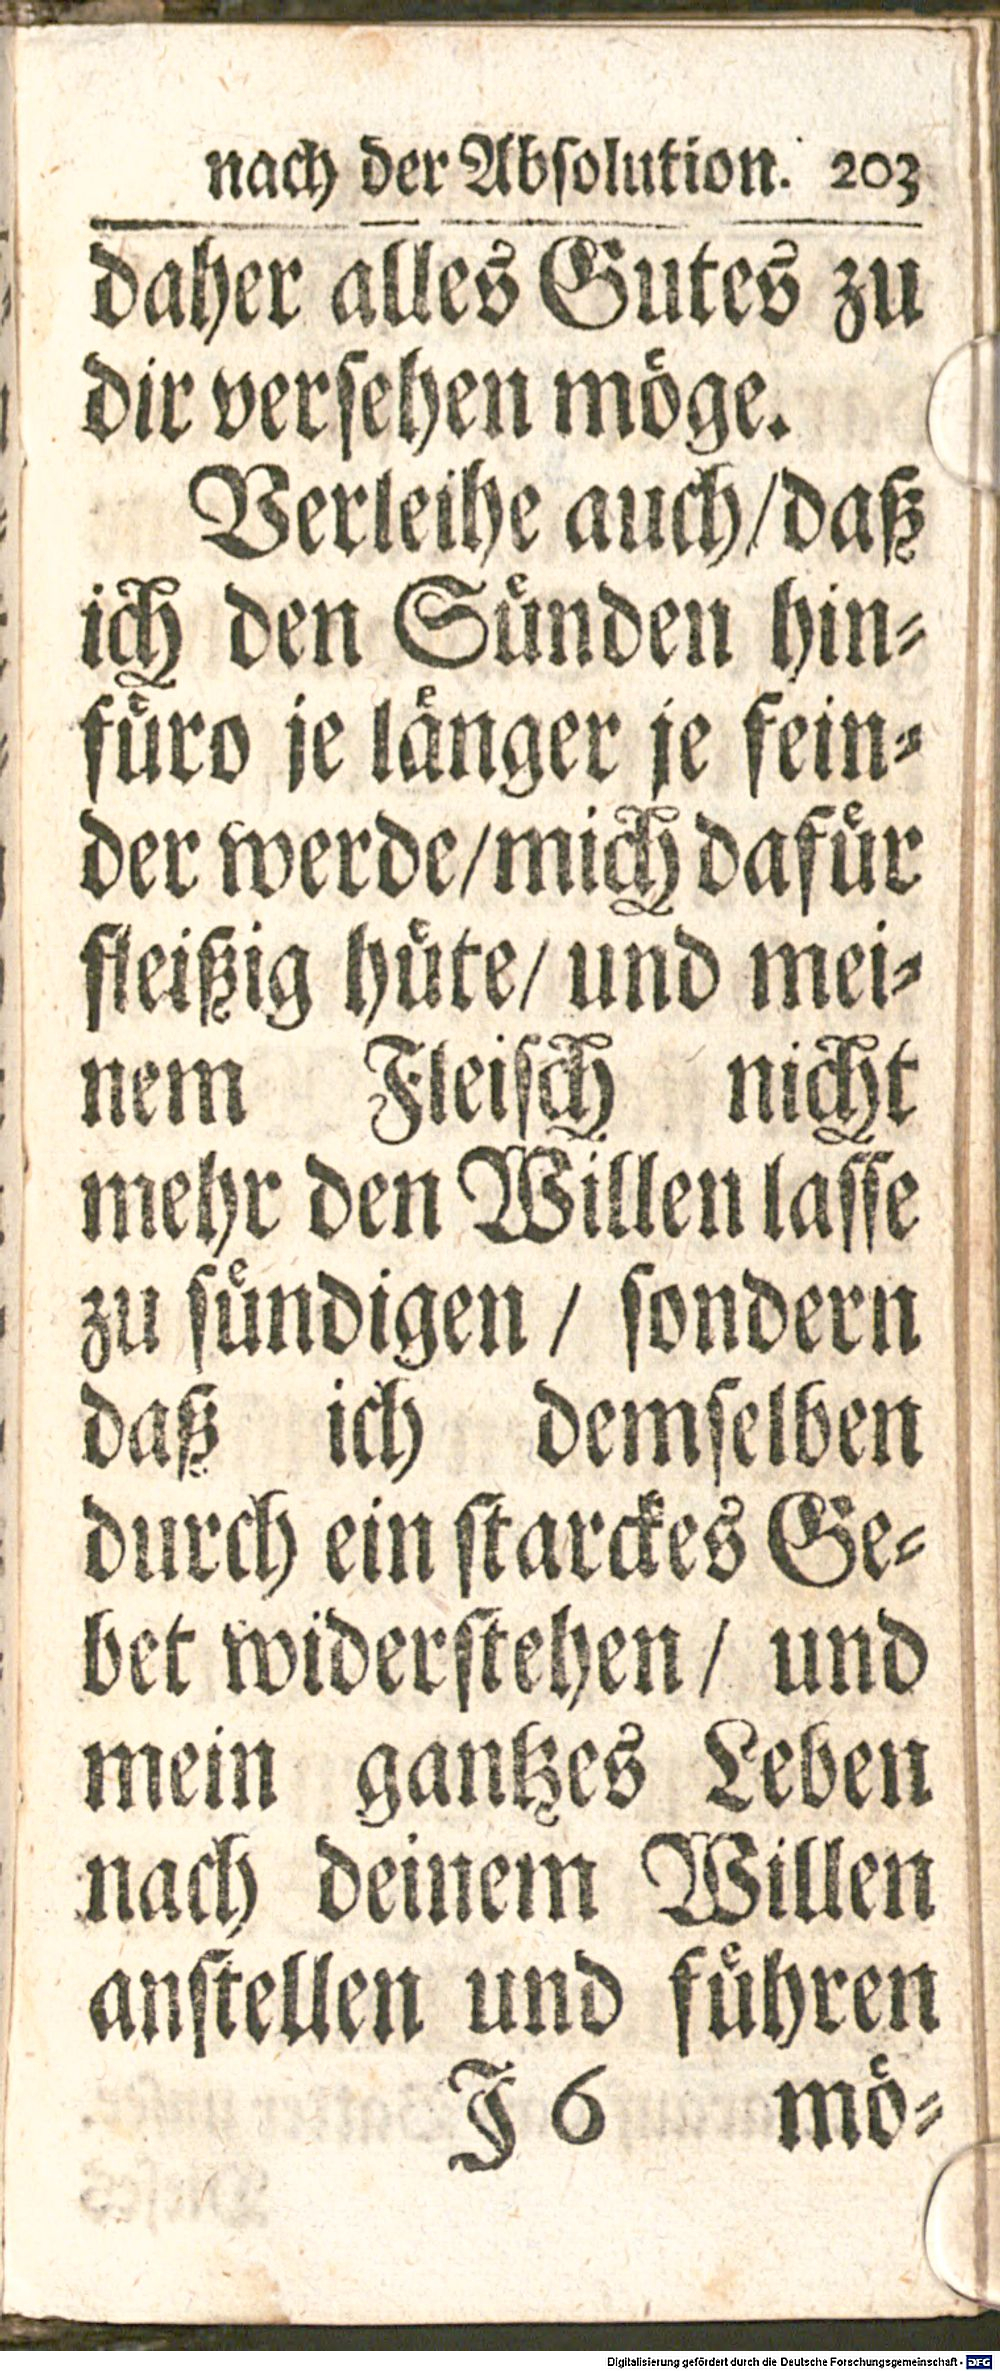 nach der Absolution. 203
daher alles Gutes zu
dir versehen möge.
Verleihe auch/daß
ich den Sünden hin-
füro je länger je fein-
der werde/mich dafür
fleißig hüte/ und mei-
nem Fleisch nicht
mehr den Willen lasse
zu sündigen / sondern
daß ich demselben
durch ein starckes Ge-
bet widerstehen/ und
mein gantzes Leben
nach deinem Willen
anstellen und führen
J 6 mö-
Digitalisierung gefördert durch die Deutsche Forschungsgemeinschaft - DFG